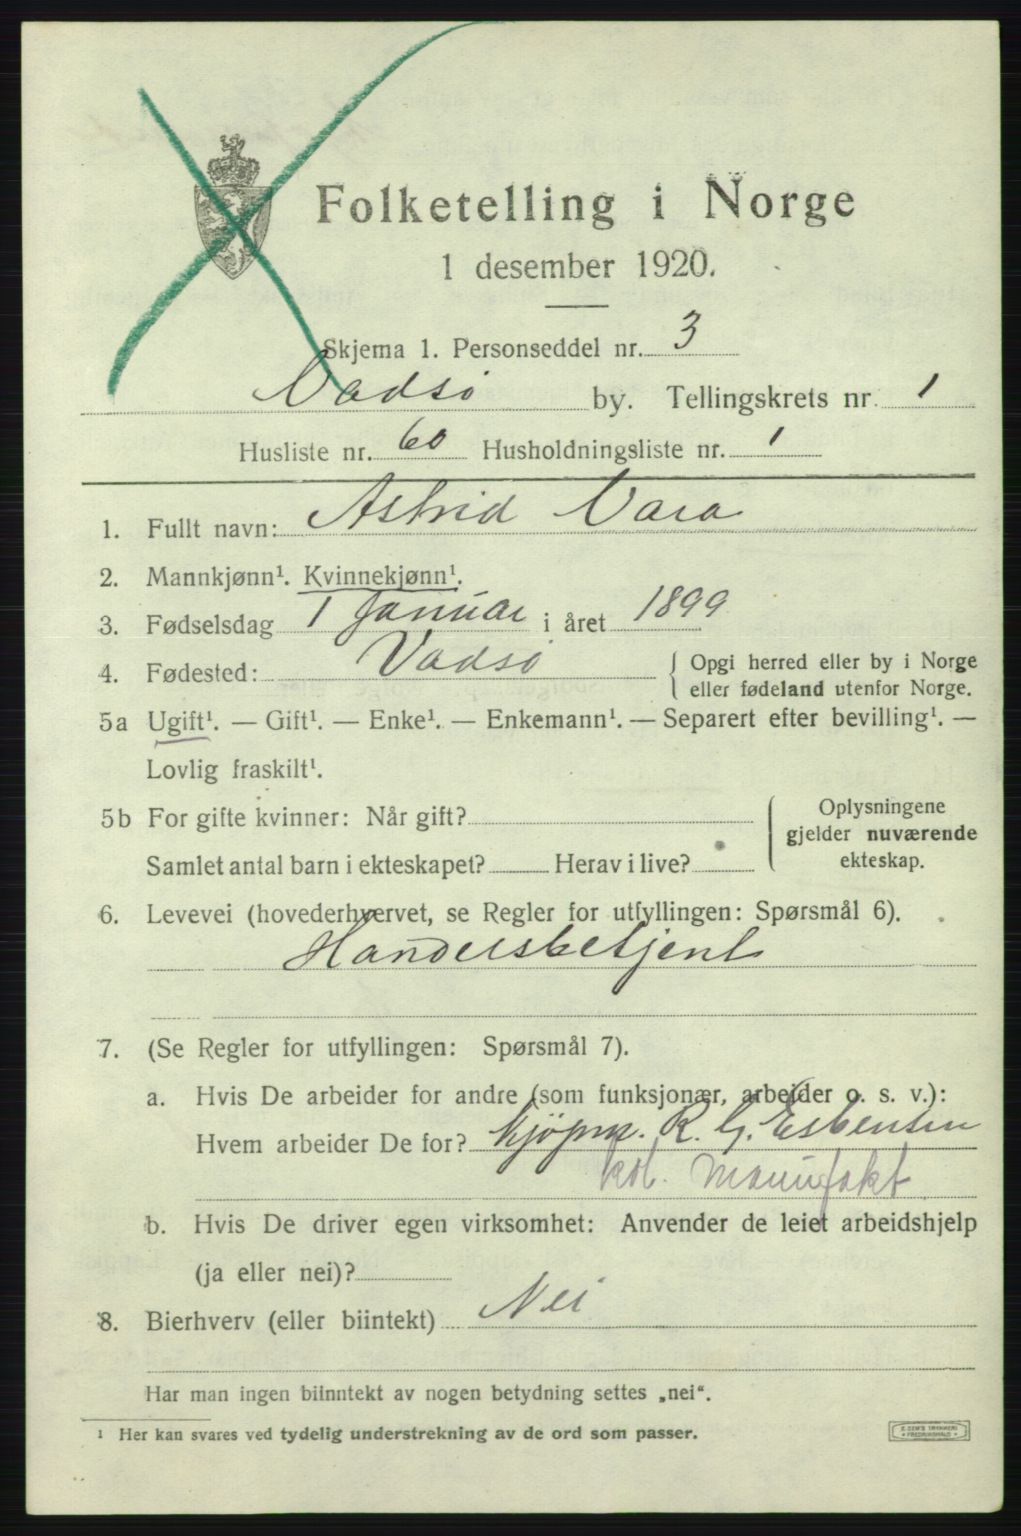 Folketelling i Norge
1 desember 1920.
Skjema 1. Personseddel nr. 3
Vadsø by. Tellingskrets nr. 1
Husliste nr. 60 Husholdningsliste nr. 1
1. Fullt navn: Astrid Vara
2. Mannkjønn¹. Kvinnekjønn¹.
3. Fødselsdag 1 Januar i året 1899
4. Fødested: Vadsø { Opgi herred eller by i Norge
eller fødeland utenfor Norge.
5a Ugift¹. — Gift¹. — Enke¹. — Enkemann¹. — Separert efter bevilling¹. —
Lovlig fraskilt¹.
5b For gifte kvinner: Når gift?
Samlet antal barn i ekteskapet? Herav i live?
Oplysningene
gjelder nuværende
ekteskap.
6. Levevei (hovederhvervet, se Regler for utfyllingen: Spørsmål 6).
Handelsbetjent
7. (Se Regler for utfyllingen: Spørsmål 7).
a. Hvis De arbeider for andre (som funksjonær, arbeider o. s. v.):
Hvem arbeider De for? Kjøpm. R. G. Esbensen
kol. Manufakt
b. Hvis De driver egen virksomhet: Anvender de leiet arbeidshjelp
(ja eller nei)?
8. Bierhverv (eller biintekt) Nei
Har man ingen biinntekt av nogen betydning settes „nei“.
¹ Her kan svares ved tydelig understrekning av de ord som passer.